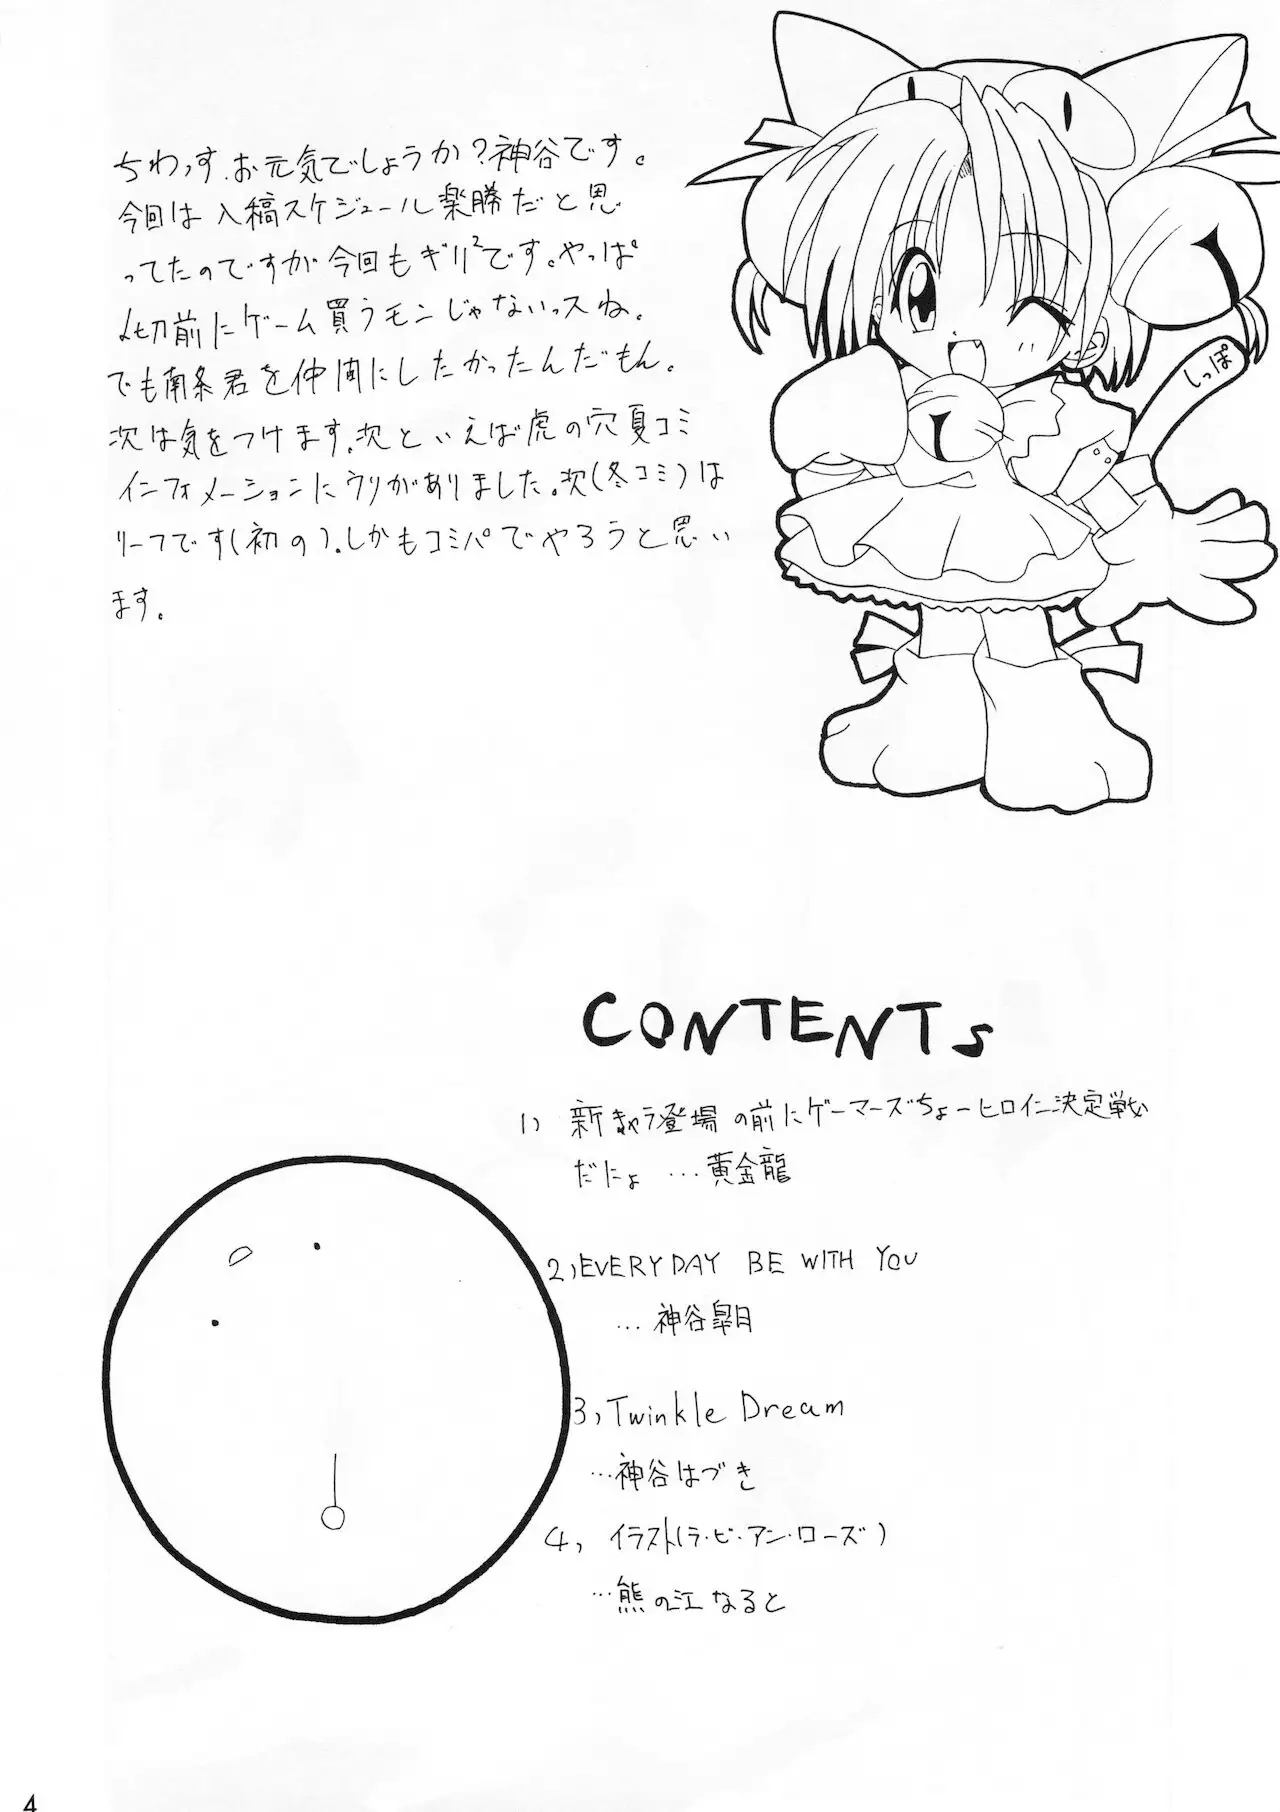 ちわっす、お元気でしょうか?神谷です。
今回は入稿スケジュール楽勝だと思
ってたのですが今回もギリ²です。やっぱ
〆切前にゲーム買うモンじゃないっスね。
でも南条君を仲間にしたかったんだもん。
次は気をつけます。次といえば虎の穴夏コミ
インフォメーションにウリがありました。次(冬コミ)は
リーフです(初の)。しかもコミパでやろうと思い
ます。
しっぽ
CONTENTs
1) 新キャラ登場の前にゲーマーズちょーヒロイン決定戦
だにょ …黄金龍
2, EVERYDAY BE WITH YOU
…神谷皐月
3, Twinkle Dream
…神谷はづき
4, イラスト(ラ・ビ・アン・ローズ)
…熊の江なると
4